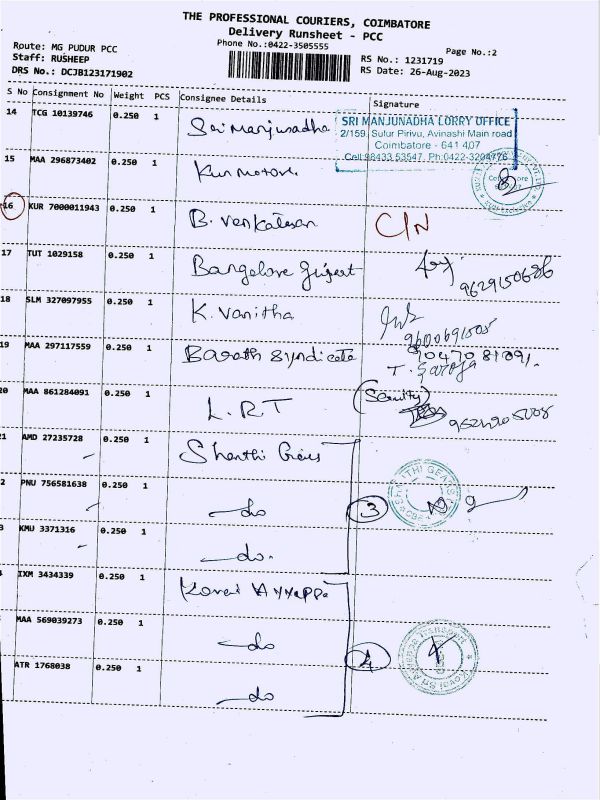 THE PROFESSIONAL COURIERS, COIMBATORE
Delivery Runsheet - PCC
Phone No.:0422-3505555
Page No.:2
Route: MG PUDUR PCC
Staff: RUSHEEP
DRS No.: DCJB123171902
RS No.: 1231719
RS Date: 26-Aug-2023
S No Consignment No Weight PCS Consignee Details Signature
14 TCG 10139746 0.250 1 Sri Manjunadha
SRI MANJUNADHA LORRY OFFICE
2/159, Sulur Pirivu, Avinashi Main road
Coimbatore - 641 407
Cell:98433 53547, Ph:0422-3204776
15 MAA 296873402 0.250 1
16 KUR 7000011943 0.250 1 B. Venkatesan C/N
17 TUT 1029158 0.250 1 Bangalore 9629150686
18 SLM 327097955 0.250 1 K. Vanitha
19 MAA 297117559 0.250 1 Barath Syndicate
T. Saroja
20 MAA 861284091 0.250 1 L.R.T (Security)
21 AMD 27235728 0.250 1 Shanthi Gears
2 PNU 756581638 0.250 1 do 3
3 KMU 3371316 0.250 1 do.
IXM 3434339 0.250 1 Kovai Ayyappa
MAA 569039273 0.250 1 do
4
ATR 1768038 0.250 1 do